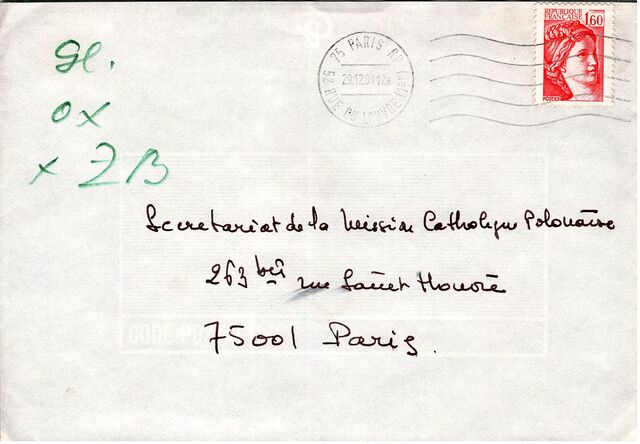 Gl.
OX
x ZB
75 PARIS RP
29.12.81 12H
52 RUE DU LOUVRE (1er)
REPUBLIQUE
FRANÇAISE
1,60
POSTES
Secretariat de la Mission Catholique Polonaise
263 bis rue Saint Honoré
75001 Paris.
CODE PO